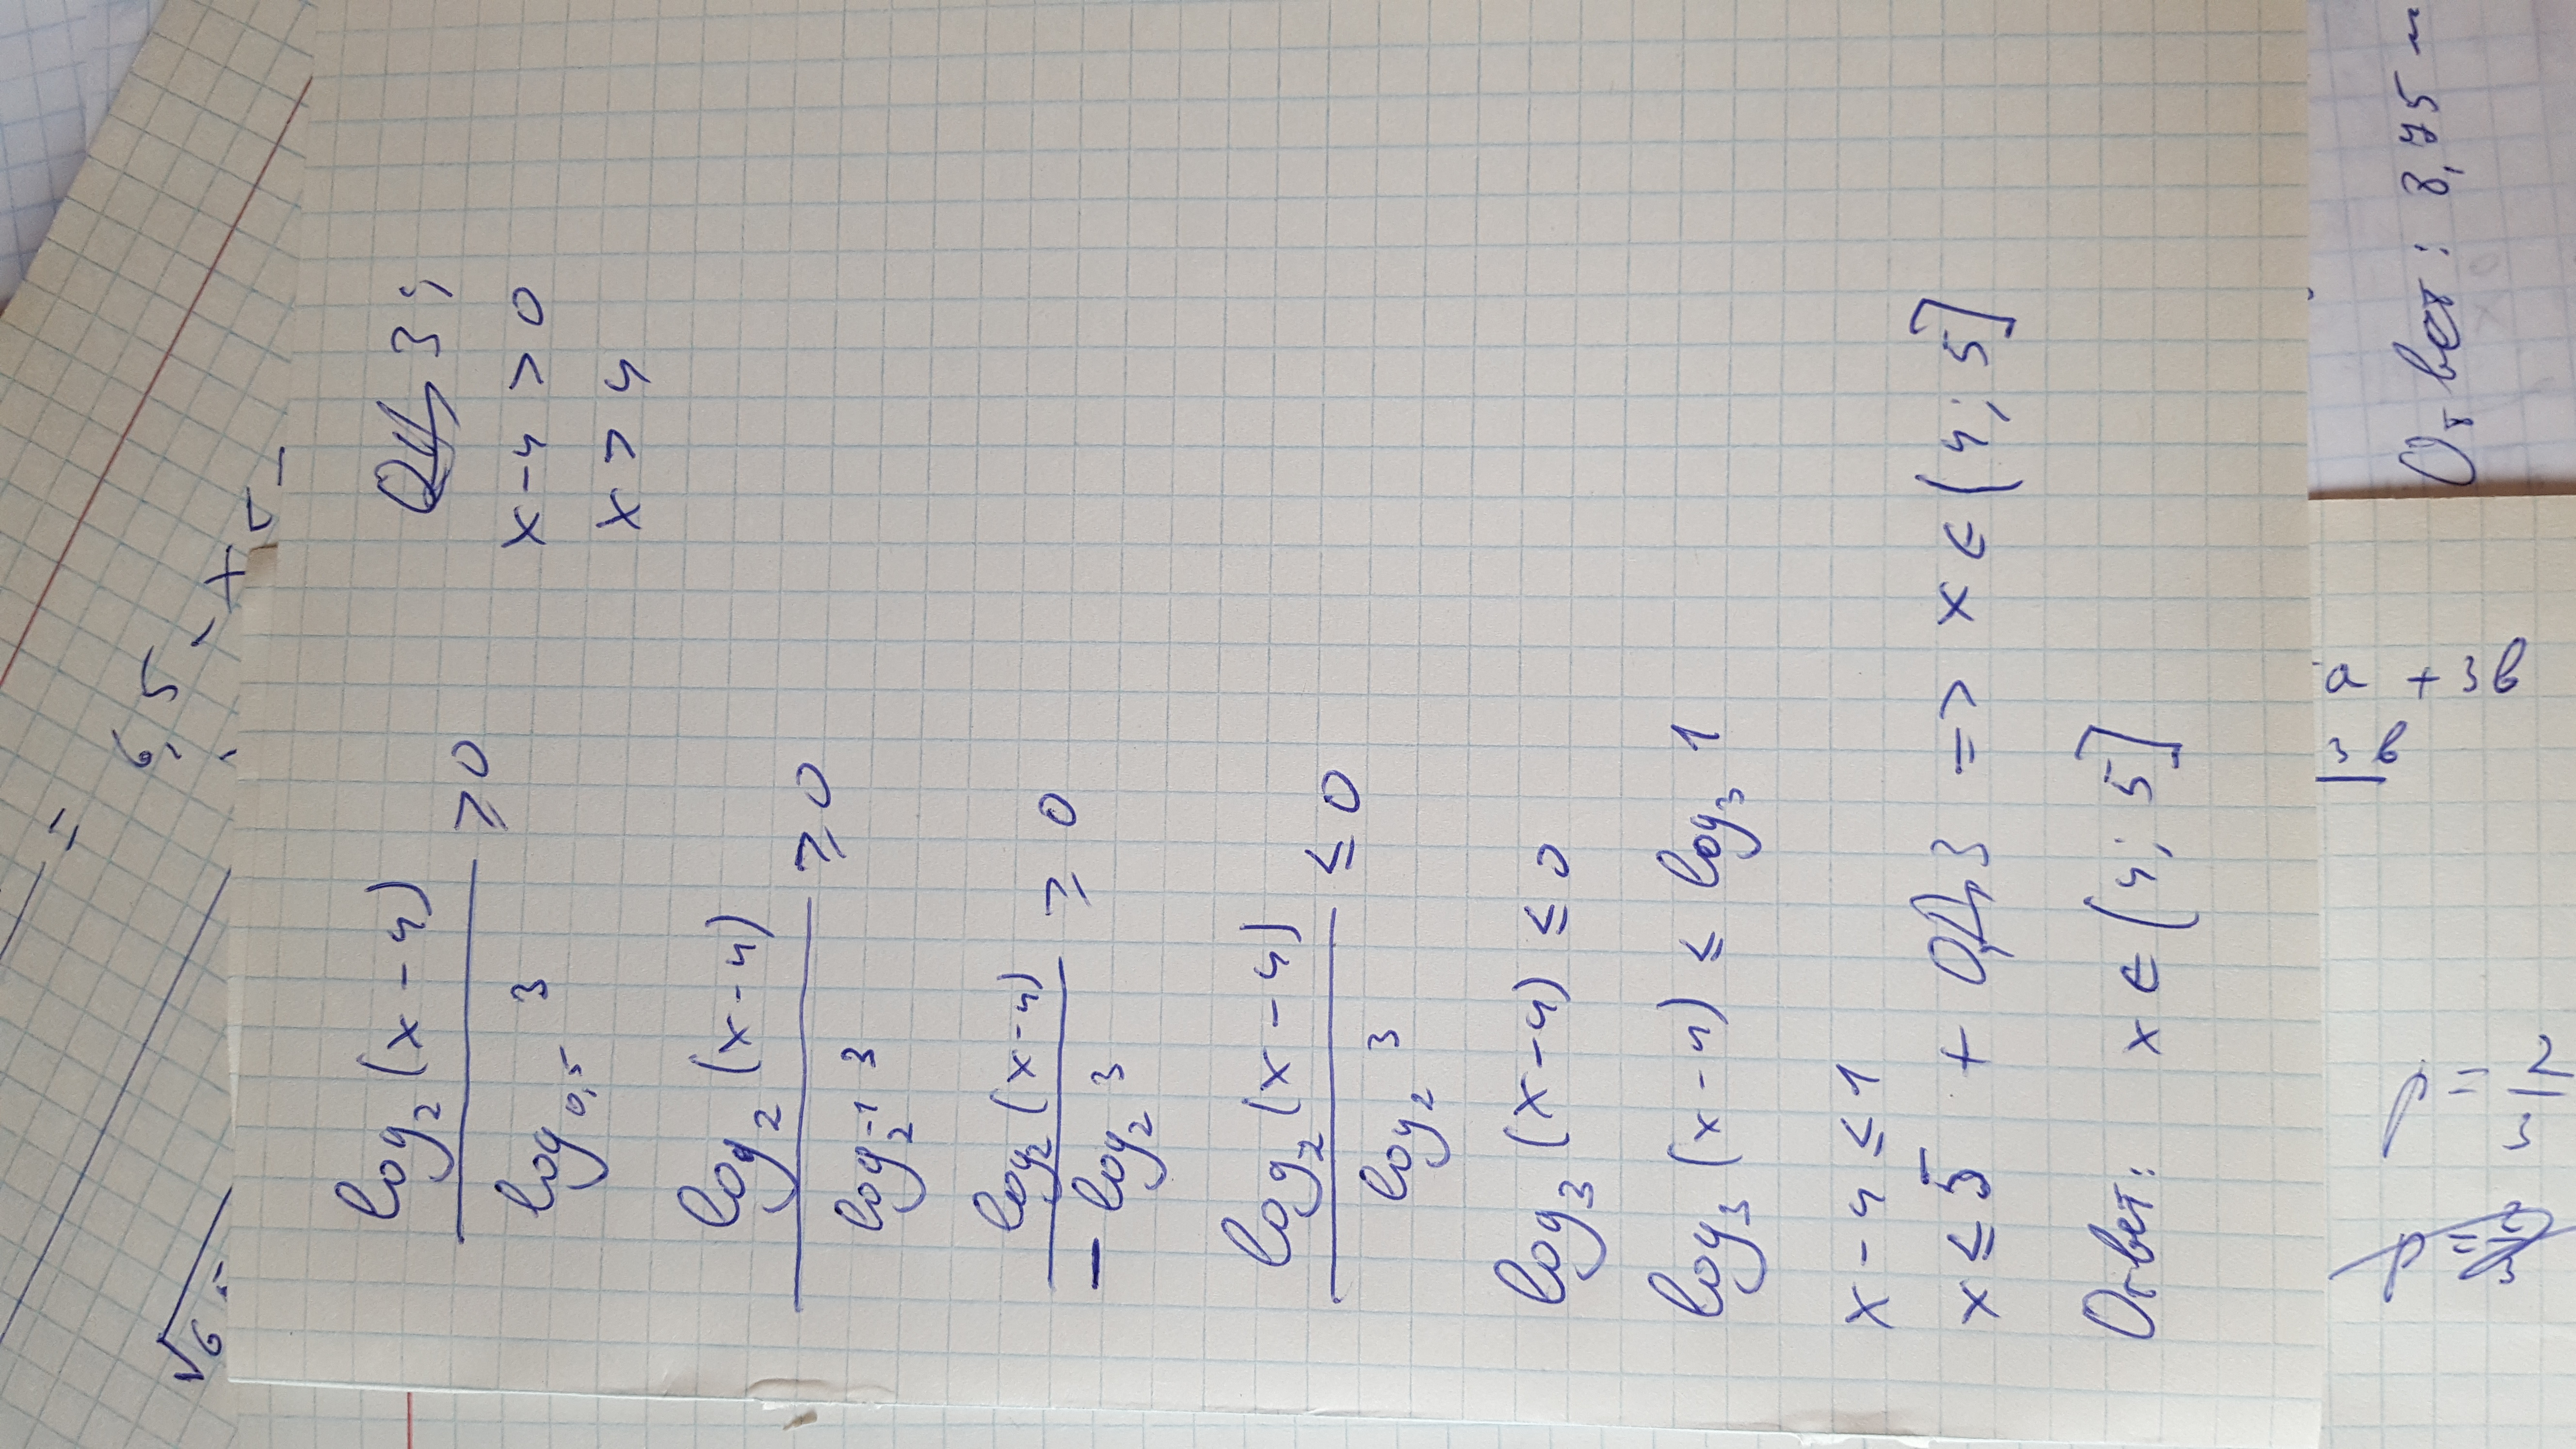 log₂(x-4) / log₀,₅ 3 ≥ 0
ОДЗ:
x-4 > 0
x > 4
log₂(x-4) / log₂⁻¹ 3 ≥ 0
log₂(x-4) / - log₂ 3 ≥ 0
log₂(x-4) / log₂ 3 ≤ 0
log₃(x-4) ≤ 0
log₃(x-4) ≤ log₃ 1
x-4 ≤ 1
x ≤ 5 + ОДЗ => x ∈ (4; 5]
Ответ: x ∈ (4; 5]
Ответ: 8,75 м
+ 3b